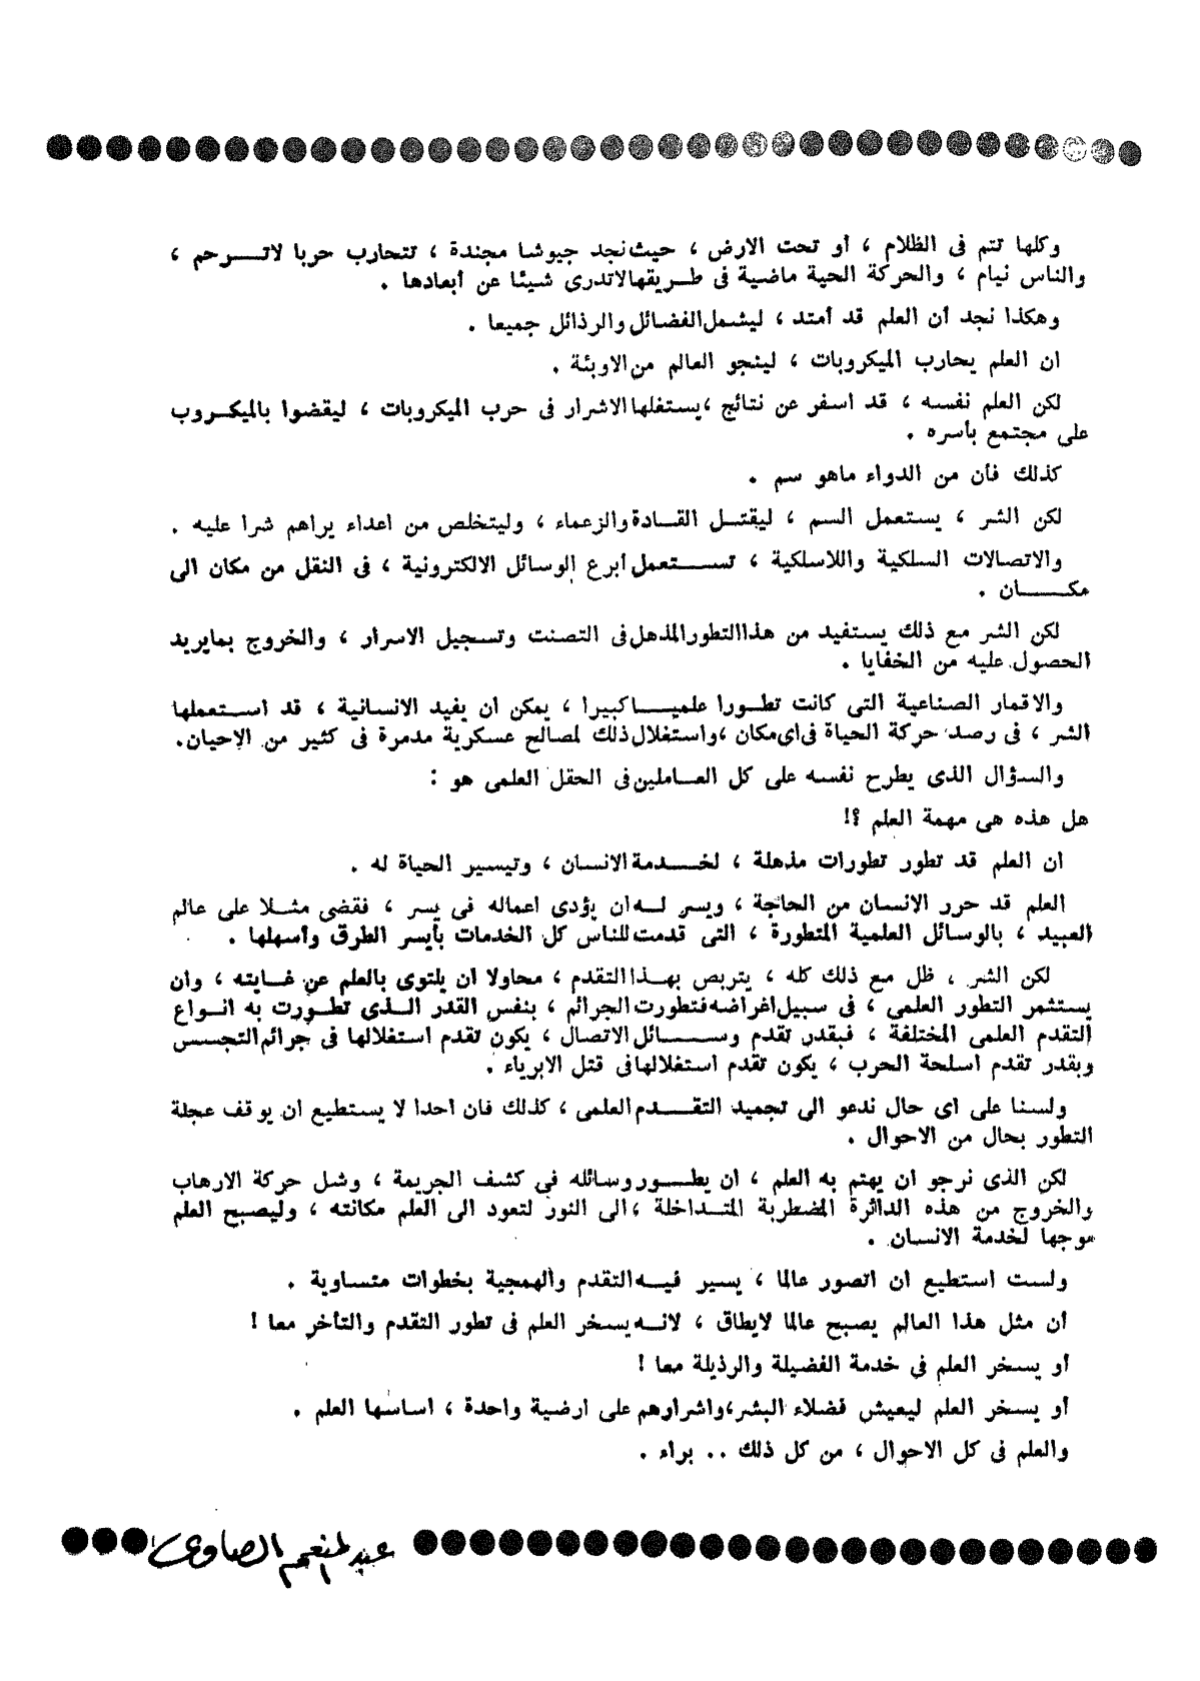 وكلها تتم فى الظلام ، أو تحت الارض ، حيث نجد جيوشا مجندة ، تتحارب حربا لاترحم ،
والناس نيام ، والحركة الحية ماضية فى طريقها لاتدرى شيئا عن أبعادها .
وهكذا نجد أن العلم قد أمتد ، ليشمل الفضائل والرذائل جميعا .
ان العلم يحارب الميكروبات ، لينجو العالم من الاوبئة .
لكن العلم نفسه ، قد اسفر عن نتائج ، يستغلها الاشرار فى حرب الميكروبات ، ليقضوا بالميكروب
على مجتمع بأسره .
كذلك فأن من الدواء ماهو سم .
لكن الشر ، يستعمل السم ، ليقتل القادة والزعماء ، وليتخلص من اعداء يراهم شرا عليه .
والاتصالات السلكية واللاسلكية ، تستعمل أبرع الوسائل الالكترونية ، فى النقل من مكان الى
مكان .
لكن الشر مع ذلك يستفيد من هذا التطور المذهل فى التصنت وتسجيل الاسرار ، والخروج بمايريد
الحصول عليه من الخفايا .
والاقمار الصناعية التى كانت تطورا علميا كبيرا ، يمكن ان يفيد الانسانية ، قد استعملها
الشر ، فى رصد حركة الحياة فى اى مكان ، واستغلال ذلك لمصالح عسكرية مدمرة فى كثير من الاحيان.
والسؤال الذى يطرح نفسه على كل العاملين فى الحقل العلمى هو :
هل هذه هى مهمة العلم ؟!
ان العلم قد تطور تطورات مذهلة ، لخدمة الانسان ، وتيسير الحياة له .
العلم قد حرر الانسان من الحاجة ، ويسر له ان يؤدى اعماله فى يسر ، فقضى مثلا على عالم
العبيد ، بالوسائل العلمية المتطورة ، التى قدمت للناس كل الخدمات بأيسر الطرق وأسهلها .
لكن الشر ، ظل مع ذلك كله ، يتربص بهذا التقدم ، محاولا ان يلتوى بالعلم عن غايته ، وان
يستثمر التطور العلمى ، فى سبيل اغراضه فتطورت الجرائم ، بنفس القدر الذى تطورت به انواع
التقدم العلمى المختلفة ، فبقدر تقدم وسائل الاتصال ، يكون تقدم استغلالها فى جرائم التجسس
وبقدر تقدم اسلحة الحرب ، يكون تقدم استغلالها فى قتل الابرياء .
ولسنا على اى حال ندعو الى تجميد التقدم العلمى ، كذلك فان احدا لا يستطيع ان يوقف عجلة
التطور بحال من الاحوال .
لكن الذى نرجو ان يهتم به العلم ، ان يطور وسائله فى كشف الجريمة ، وشل حركة الارهاب
والخروج من هذه الدائرة المضطربة المتداخلة ، الى النور لتعود الى العلم مكانته ، وليصبح العلم
موجها لخدمة الانسان .
ولست استطيع ان اتصور عالما ، يسير فيه التقدم والهمجية بخطوات متساوية .
أن مثل هذا العالم يصبح عالما لايطاق ، لانه يسخر العلم فى تطور التقدم والتأخر معا !
أو يسخر العلم فى خدمة الفضيلة والرذيلة معا !
أو يسخر العلم ليعيش فضلاء البشر، واشرارهم على ارضية واحدة ، اساسها العلم .
والعلم فى كل الاحوال ، من كل ذلك .. براء .
عبد المنعم الصاوى